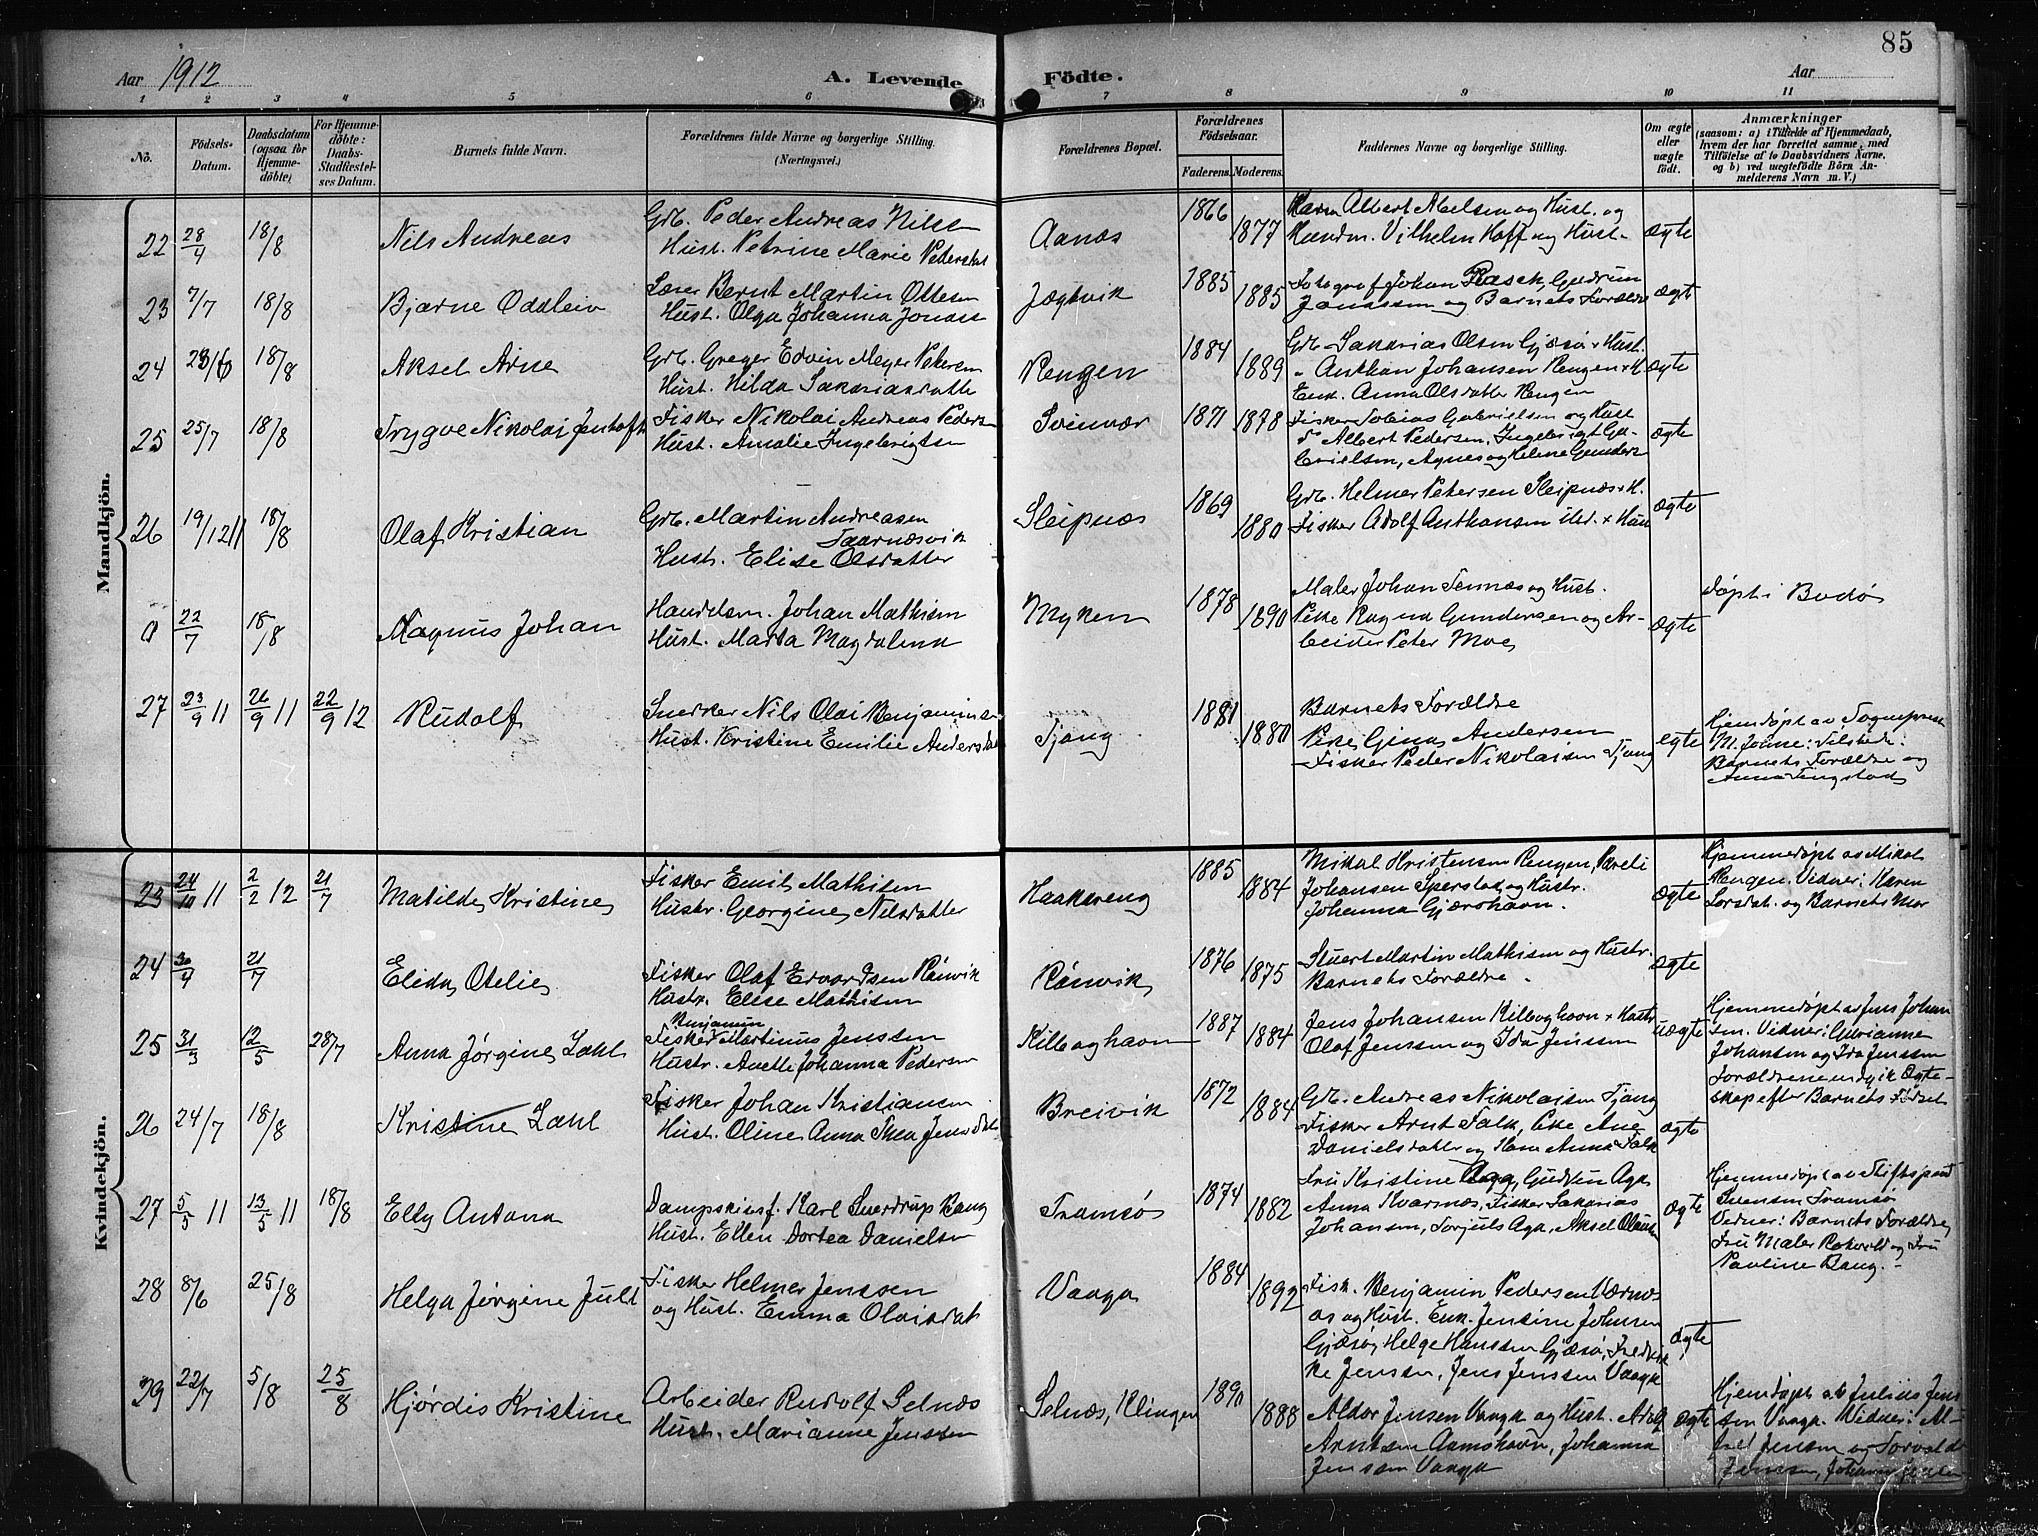 85
Aar 1912
A. Levende Födte.
Aar
1 2 3 4 5 6 7 8 9 10 11
No.
Födsels-Datum.
Daabsdatum (ogsaa for Hjemme-döbte)
For Hjemme-döbte: Daabs-Stadfæstel-ses Datum.
Barnets fulde Navn.
Forældrenes fulde Navne og borgerlige Stilling. (Næringsvei.)
Forældrenes Bopæl.
Forældrenes Födselsaar.
Faderens. Moderens.
Faddernes Navne og borgerlige Stilling.
Om ægte eller uægte födt.
Anmærkninger
(saasom: a) i Tilfælde af Hjemmedaab, hvem der har forrettet samme, med Tilföielse af to Daabsvidners Navne, og b) ved uægtefödte Börn An-melderens Navn m. V.)
Mandkjön.
22 28/4 18/8 Nils Andreas
Grb. Peder Andreas Nils
Hust. Petrine Marie Pedersdat
Aanes 1866 1877
Albert Abelsen og Hust. og
Handm. Vilhelm Hoff og Hust.
ægte
23 7/7 18/8 Bjarne Oddleiv
Lærer Bernt Martin Ottesen
Hust. Olga Johanna Jonass
Jægtvik 1885 1885
Fotograf Johan Rasch, Gudrun
Jonassen og Barnets Forældre
ægte
24 23/6 18/8 Aksel Arne
Grb. Greger Edvin Meyer Petersen
Hust. Hilda Sakariasdatte
Rengen 1884 1889
Grb. Sakarias Olsen Gjæsø + Hust.
" Anthon Johansen Rengen + H
Enk. Anna Olsdatter Rengen
ægte
25 25/7 18/8 Trygve Nikolai Jentoft
Fisker Nikolai Andreas Peders
Hust. Amalie Ingebrigtsen
Svinvær 1871 1878
Fisker Tobias Gabrielsen og Hust
Do Albert Pedersen, Ingebrigt Ga-
brielsen, Agnes og Helene Gunders
ægte
26 19/12 11 18/8 Olaf Kristian
Grb. Martin Andreasen
Hust. Elise Olsdatter
Sleipnes 1869 1880
Grb. Helmer Petersen Sleipnæs + H.
Fisker Adolf Anthonsen ibd. + Hus
ægte
0 22/7 18/8 Magnus Johan
Handelsm. Johan Mathisen
Hust. Marta Magdalena
Myken 1878 1890
Maler Johan Tennæs og Hust.
Pike Ragna Gundersen og Ar-
beider Peter Moe
ægte
Døpt i Bodø
27 23/9 11 26/9 11 22/9 12 Rudolf
Snerker Nils Olai Benjamins
Hust. Kristine Emilie Andersdat
Tjong 1881 1880
Barnets Forældre
Pike Gina Andersen
Fisker Peder Nikolaisen Tjong
egte
Hjemdøpt av Sognepres
Barnets Forældre og
Anna Tingstad
Kvindekjön.
23 24/10 11 2/2 12 21/7 Matilde Kristine
Fisker Emil Mathisen
Hustr. Georgine Nilsdatter
Haakøreng 1885 1884
Mikal Kristensen Rengen, Pareli
Johansen Sperstad og Hustr.
Johanna Gjærshavn.
ægte
Hjemmedøpt av Mikal
Rengen. Vidner: Karen
Larsdat. og Barnets Mor
24 30/4 21/7 Elida Otelie
Fisker Olaf Edvardsen Rönvik
Hustr. Elise Mathisen
Rönvik 1876 1875
Stuert Martin Mathisen og Hustr.
Barnets Forældre.
ægte
25 31/3 12/5 28/7 Anna Jørgine Zahl
Benjamin
Fisker Martinus Jenssen
Hustr. Anette Johanna Pedersen
Kilboghavn 1887 1884
Jens Johansen Kilboghavn + Hustr
Olaf Jenssen og Ida Jenssen
uægte
Hjemmedøpt av Jens Johan
sen. Vidner: Gurianna
Johansen og Ida Jenssen
Forældrene indgik Ægte-
skap efter Barnets Fødsel
26 24/7 18/8 Kristine Zahl
Fisker Johan Kristiansen
Hust. Oline Anna Thea Jensdat
Breivik 1872 1884
Grb. Andreas Nikolaisen Tjong
Fisker Arnt Falk, Pike Ane
Danielsdatter og Hans Anna Falk
ægte
27 5/5 11 13/5 11 18/8 Elly Antona
Dampskibsf. Karl Sverdrup Bang
Hust. Ellen Dortea Danielsen
Tromsø 1874 1882
Fru Kristine Aga, Gudrun Aga
Anna Kvarnæs, Fisker Sakarias
Johansen, Torjuls Aga, Aksel Olausen
ægte
Hjemmedøpt av Stiftsprost
Svensen Tromsø
Vidner: Barnets Forældre,
Fru Maler Rokvold og Fru
Pauline Bang.
28 8/6 25/8 Helga Jørgine Juli
Fisker Helmer Jenssen
og Hust. Emma Olaisdat
Vaaga 1884 1892
Fisk. Benjamin Pedersen Værnes
os og Hust. Enk. Jensine Johnsen
Gjæsø, Helge Hanssen Gjæsø, Fredrik
ke Jenssen, Jens Jenssen Vaaga
ægte
29 22/7 5/8 25/8 Hjørdis Kristine
Arbeider Rudolf Selnæs
Hust. Marianne Jenssen
Selnæs, Klingen 1890 1888
Aldor Jensen Vaaga og Hust. Adolf
Arntsen Aamshavn, Johanna
Jenssen Vaaga
ægte
Hjemdøpt av Julius Jens
sen Vaaga. Vidner: Al-
Jensen og Torvald
Jenssen, Johanna Jensen